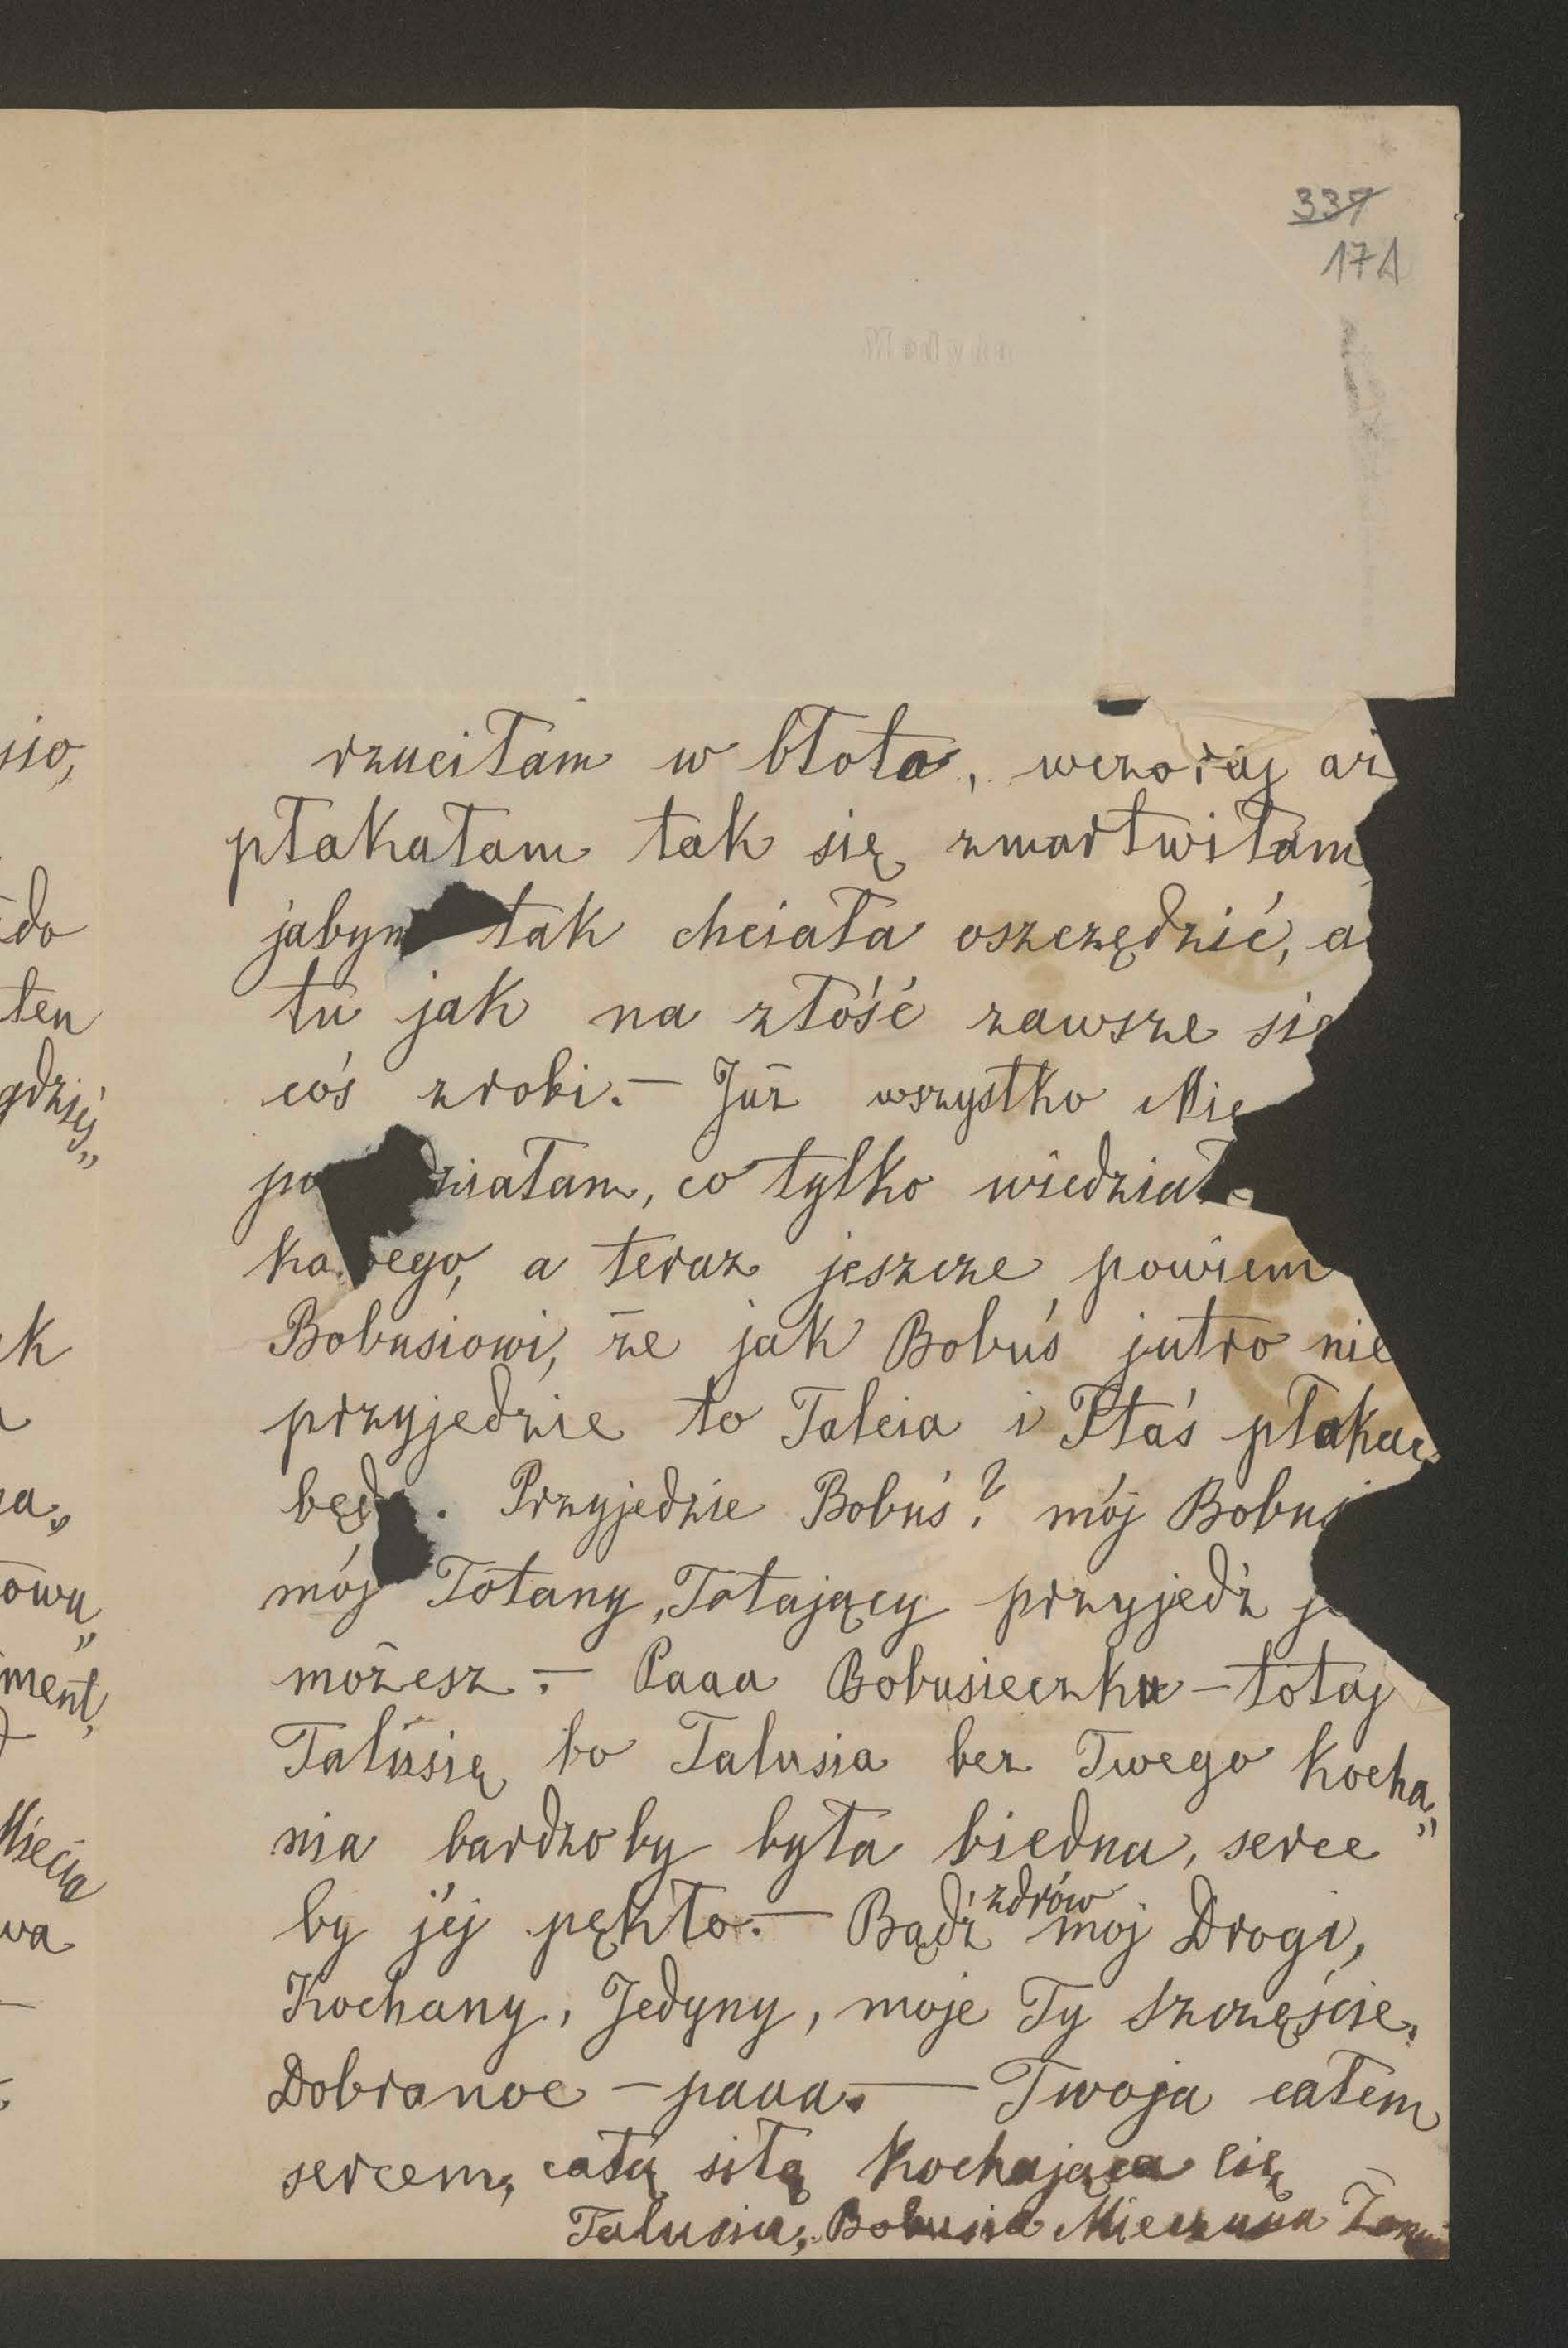 337
17A
rzuciłam w błoto, wczoraj aż
płakałam tak się zmartwiłam
jabym tak chciała oszczędzić, a
tu jak na złość zawsze się
coś zrobi. — Już wszystko Mie
po działam, co tylko wiedziałam
ka ego, a teraz jeszcze powiem
Bobusiowi, że jak Bobuś jutro nie
przyjedzie to Talcia i Ptaś płakać
będą. Przyjedzie Bobuś? mój Bobuś
mój Totany, Totający przyjedź j
możesz. — Paaa Bobusieczku — totaj
Talusię bo Talusia bez Twego kocha„
nia bardzoby była biedna, serce
by jéj pękło. — Bądź zdrów mój Drogi,
Kochany, Jedyny, moje Ty szczęście.
Dobranoc — paaa. — Twoja całem
sercem, całą siłą kochająca Cię
Talusia, Bobusia Mieczusia Żonusia
sio,
do
ten
gdzieś„
k
a„
owu„
ment,
Miecia
wa